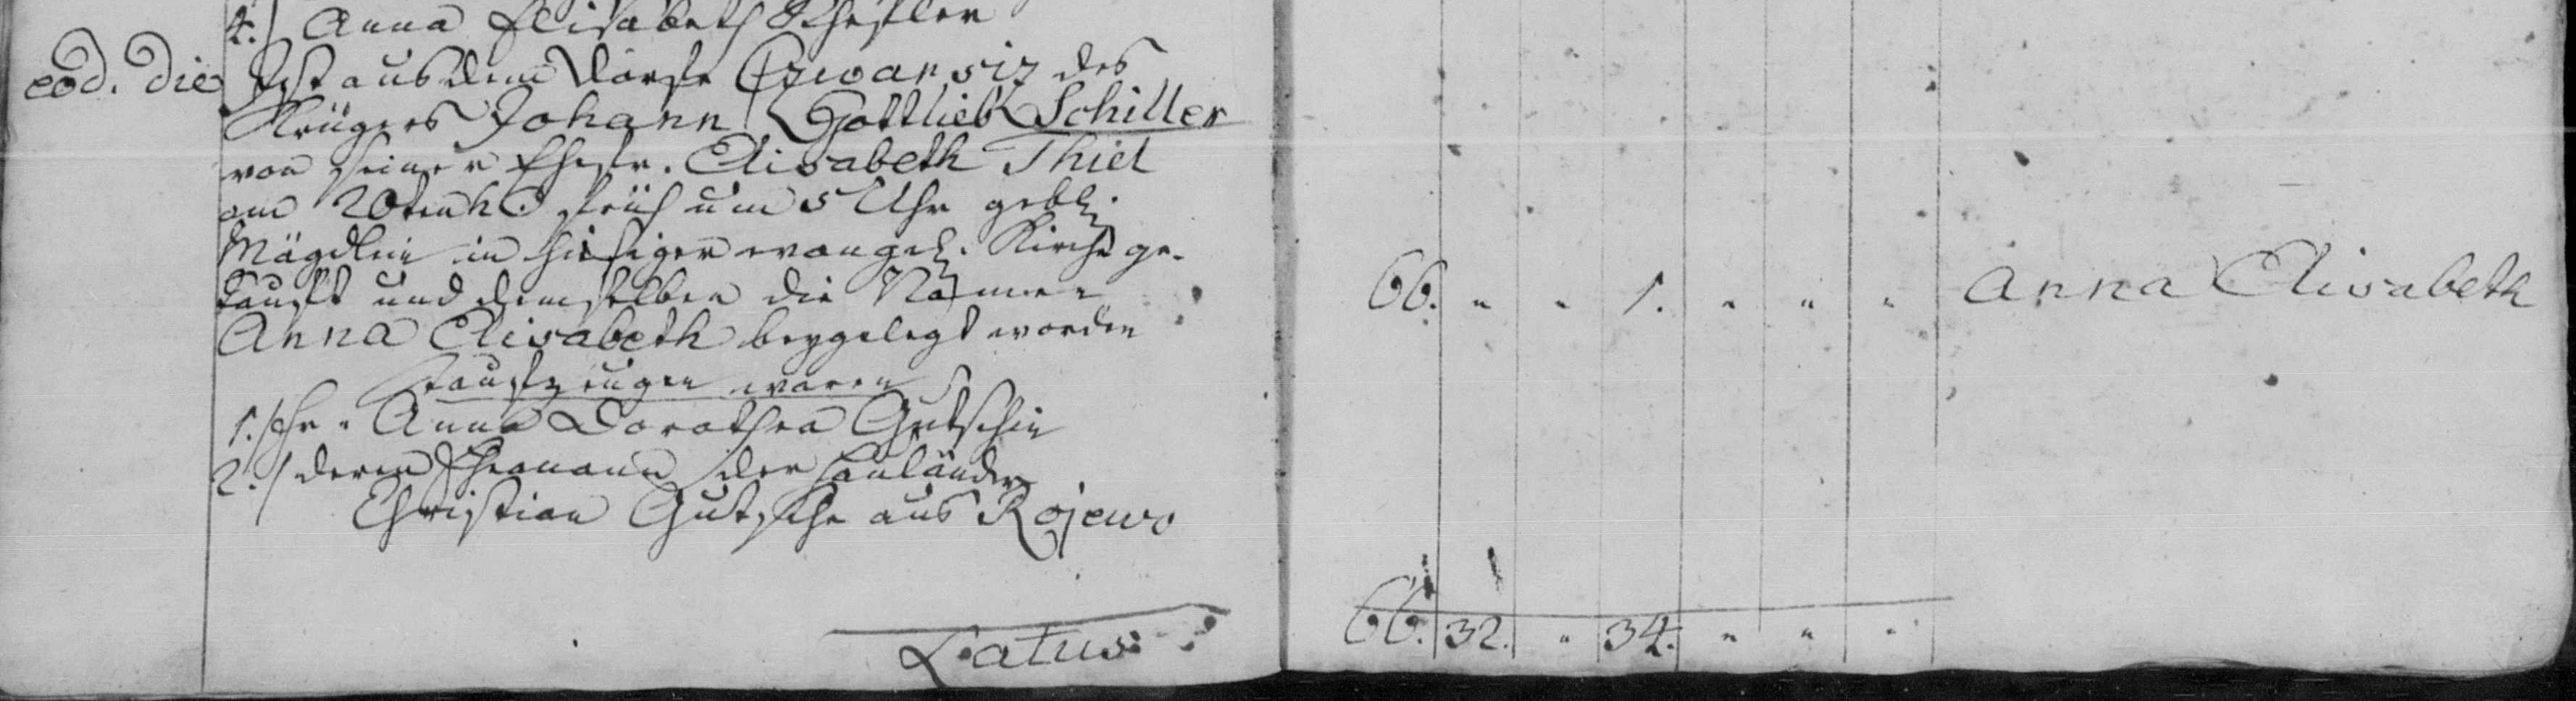 4.) Anna Elisabeth
eod. die Ist aus dem Dorfe des
Krügers Johann Gottlieb Schiller
von seiner Ehefr. Elisabeth Thiel
am 20ten h. früh um 5 Uhr gebh.
Mägdlein in hiesiger evangel. Kirche ge-
tauft und demselben die Namen 66. " " 1. " " " Anna Elisabeth
Anna Elisabeth beygelegt worden
Taufzeugen waren
1.) Fr. Anna Dorothea Gutschin
2.) deren Ehemann der Hauländer
Christian Gutsche aus Rojewo
Latus: 66. 32. " 34. " " "